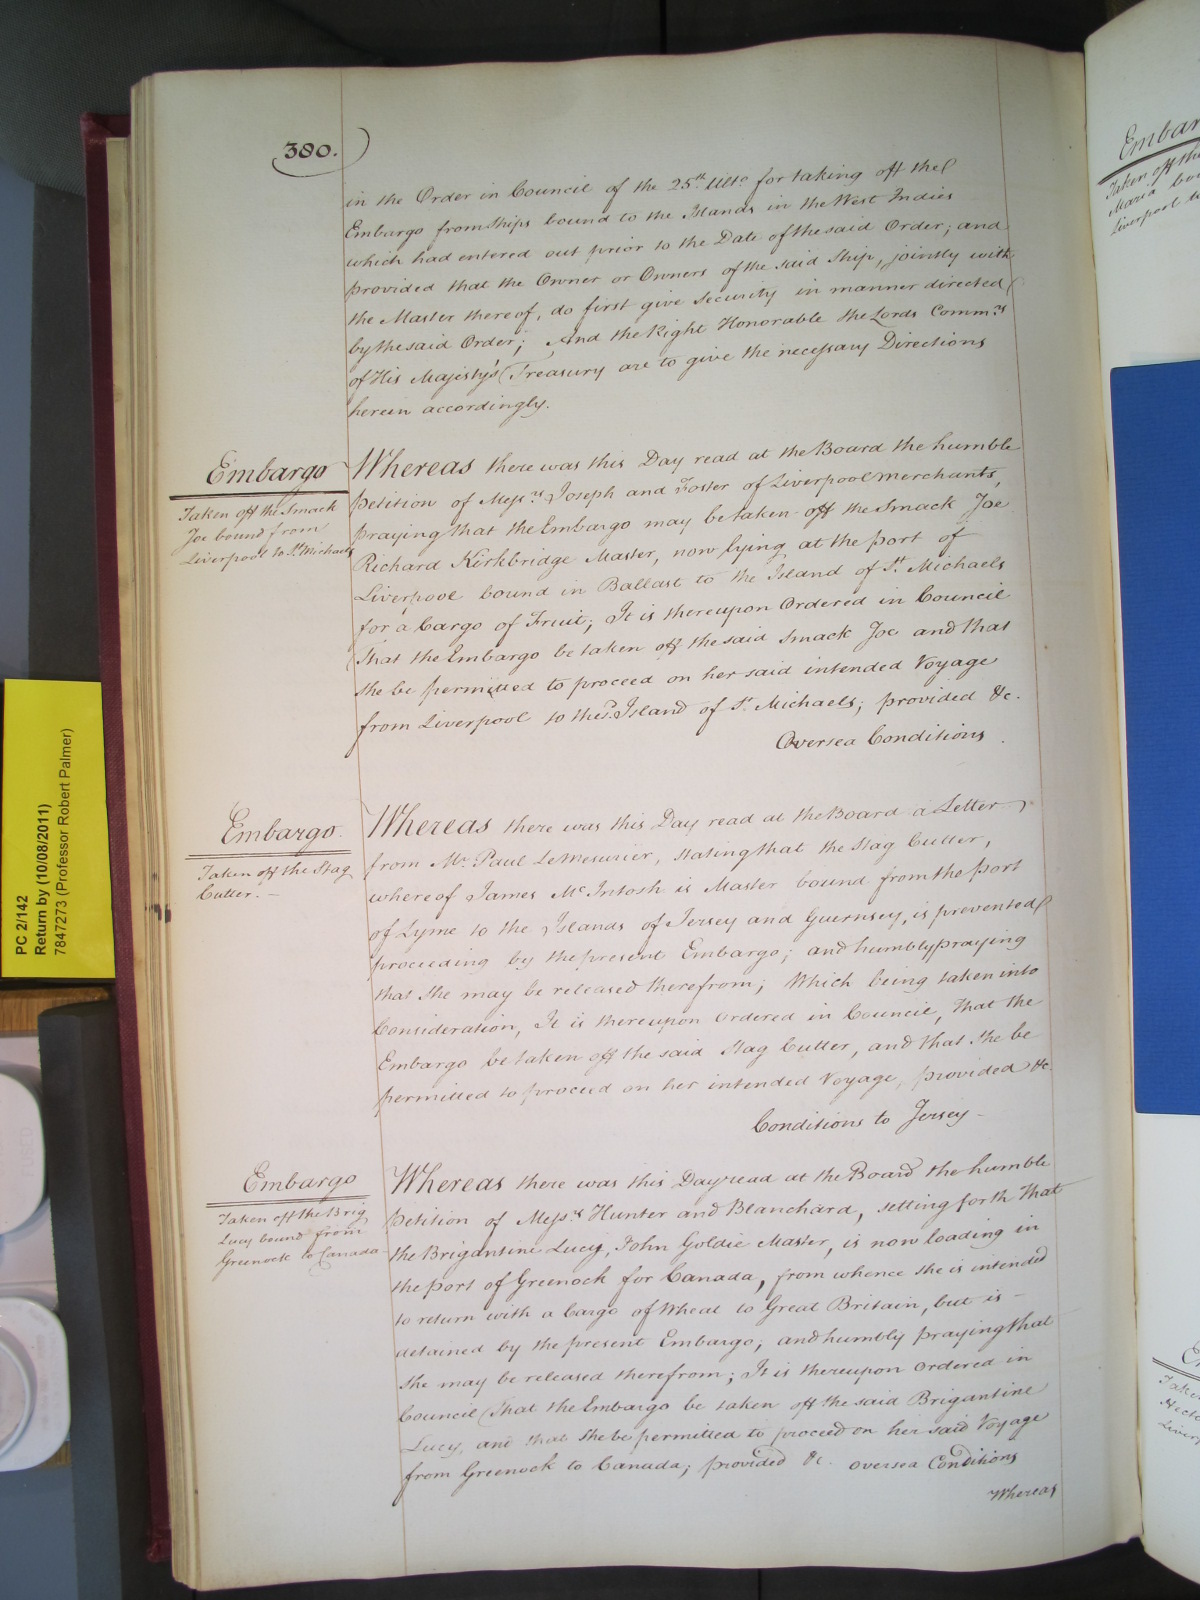 380.
in the Order in Council of the 25th Ulto for taking off the
Embargo from Ships bound to the Islands in the West Indies
which had entered out prior to the Date of the said Order; and
provided that the Owner or Owners of the said Ship, jointly with
the Master thereof, do first give Security in manner directed
by the said Order; And the Right Honorable the Lords Commrs
of His Majesty's Treasury are to give the necessary Directions
herein accordingly.
Embargo
Taken off the Smack
Joe bound from
Liverpool to St Michaels
Whereas there was this Day read at the Board the humble
Petition of Messrs Joseph and Foster of Liverpool Merchants,
praying that the Embargo may be taken off the Smack Joe
Richard Kirkbridge Master, now lying at the Port of
Liverpool bound in Ballast to the Island of St Michaels
for a Cargo of Fruit; It is thereupon Ordered in Council
that the Embargo be taken off the said Smack Joe and that
she be permitted to proceed on her said intended Voyage
from Liverpool to the Island of St Michaels; provided &c.
Oversea Conditions
Embargo
Taken off the Stag
Cutter. —
Whereas there was this Day read at the Board a Letter
from Mr Paul LeMesurier, stating that the Stag Cutter,
whereof James McIntosh is Master bound from the Port
of Lyme to the Islands of Jersey and Guernsey, is prevented
proceeding by the present Embargo; and humbly praying
that She may be released therefrom; Which being taken into
Consideration, It is thereupon Ordered in Council, that the
Embargo be taken off the said Stag Cutter, and that She be
permitted to proceed on her intended Voyage, provided &c.
Conditions to Jersey —
Embargo
Taken off the Brig
Lucy bound from
Greenock to Canada
Whereas there was this Day read at the Board the humble
Petition of Messrs Hunter and Blanchard, setting forth that
the Brigantine Lucy, John Goldie Master, is now loading in
the Port of Greenock for Canada, from whence She is intended
to return with a Cargo of Wheat to Great Britain, but is —
detained by the present Embargo; and humbly praying that
She may be released therefrom; It is thereupon Ordered in
Council that the Embargo be taken off the said Brigantine
Lucy, and that She be permitted to proceed on her said Voyage
from Greenock to Canada; provided &c. Oversea Conditions
Whereas
PC 2/142
Return by (10/08/2011)
7847273 (Professor Robert Palmer)
Embar
Taken off the
Maria bou
Liverpool to